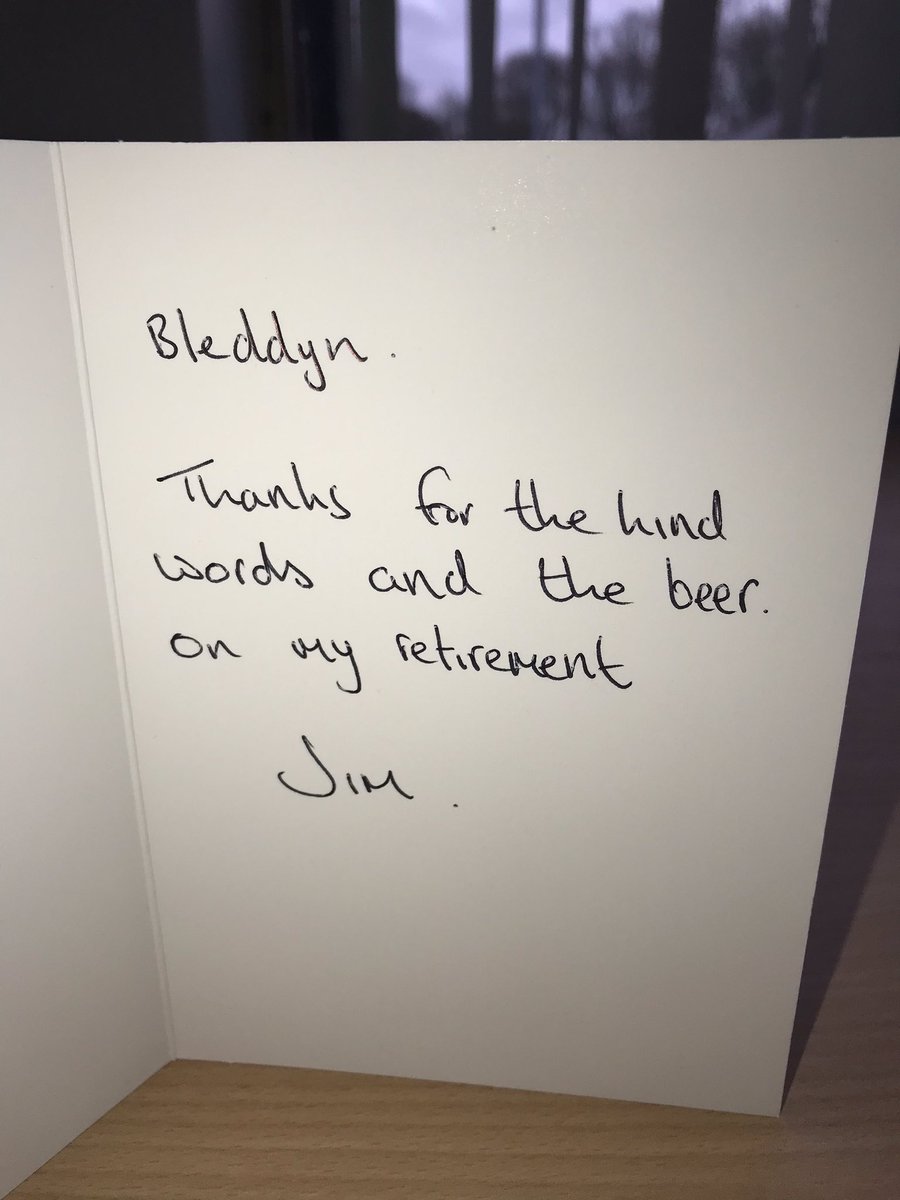 Bleddyn.
Thanks for the kind
words and the beer.
on my retirement
Jim.